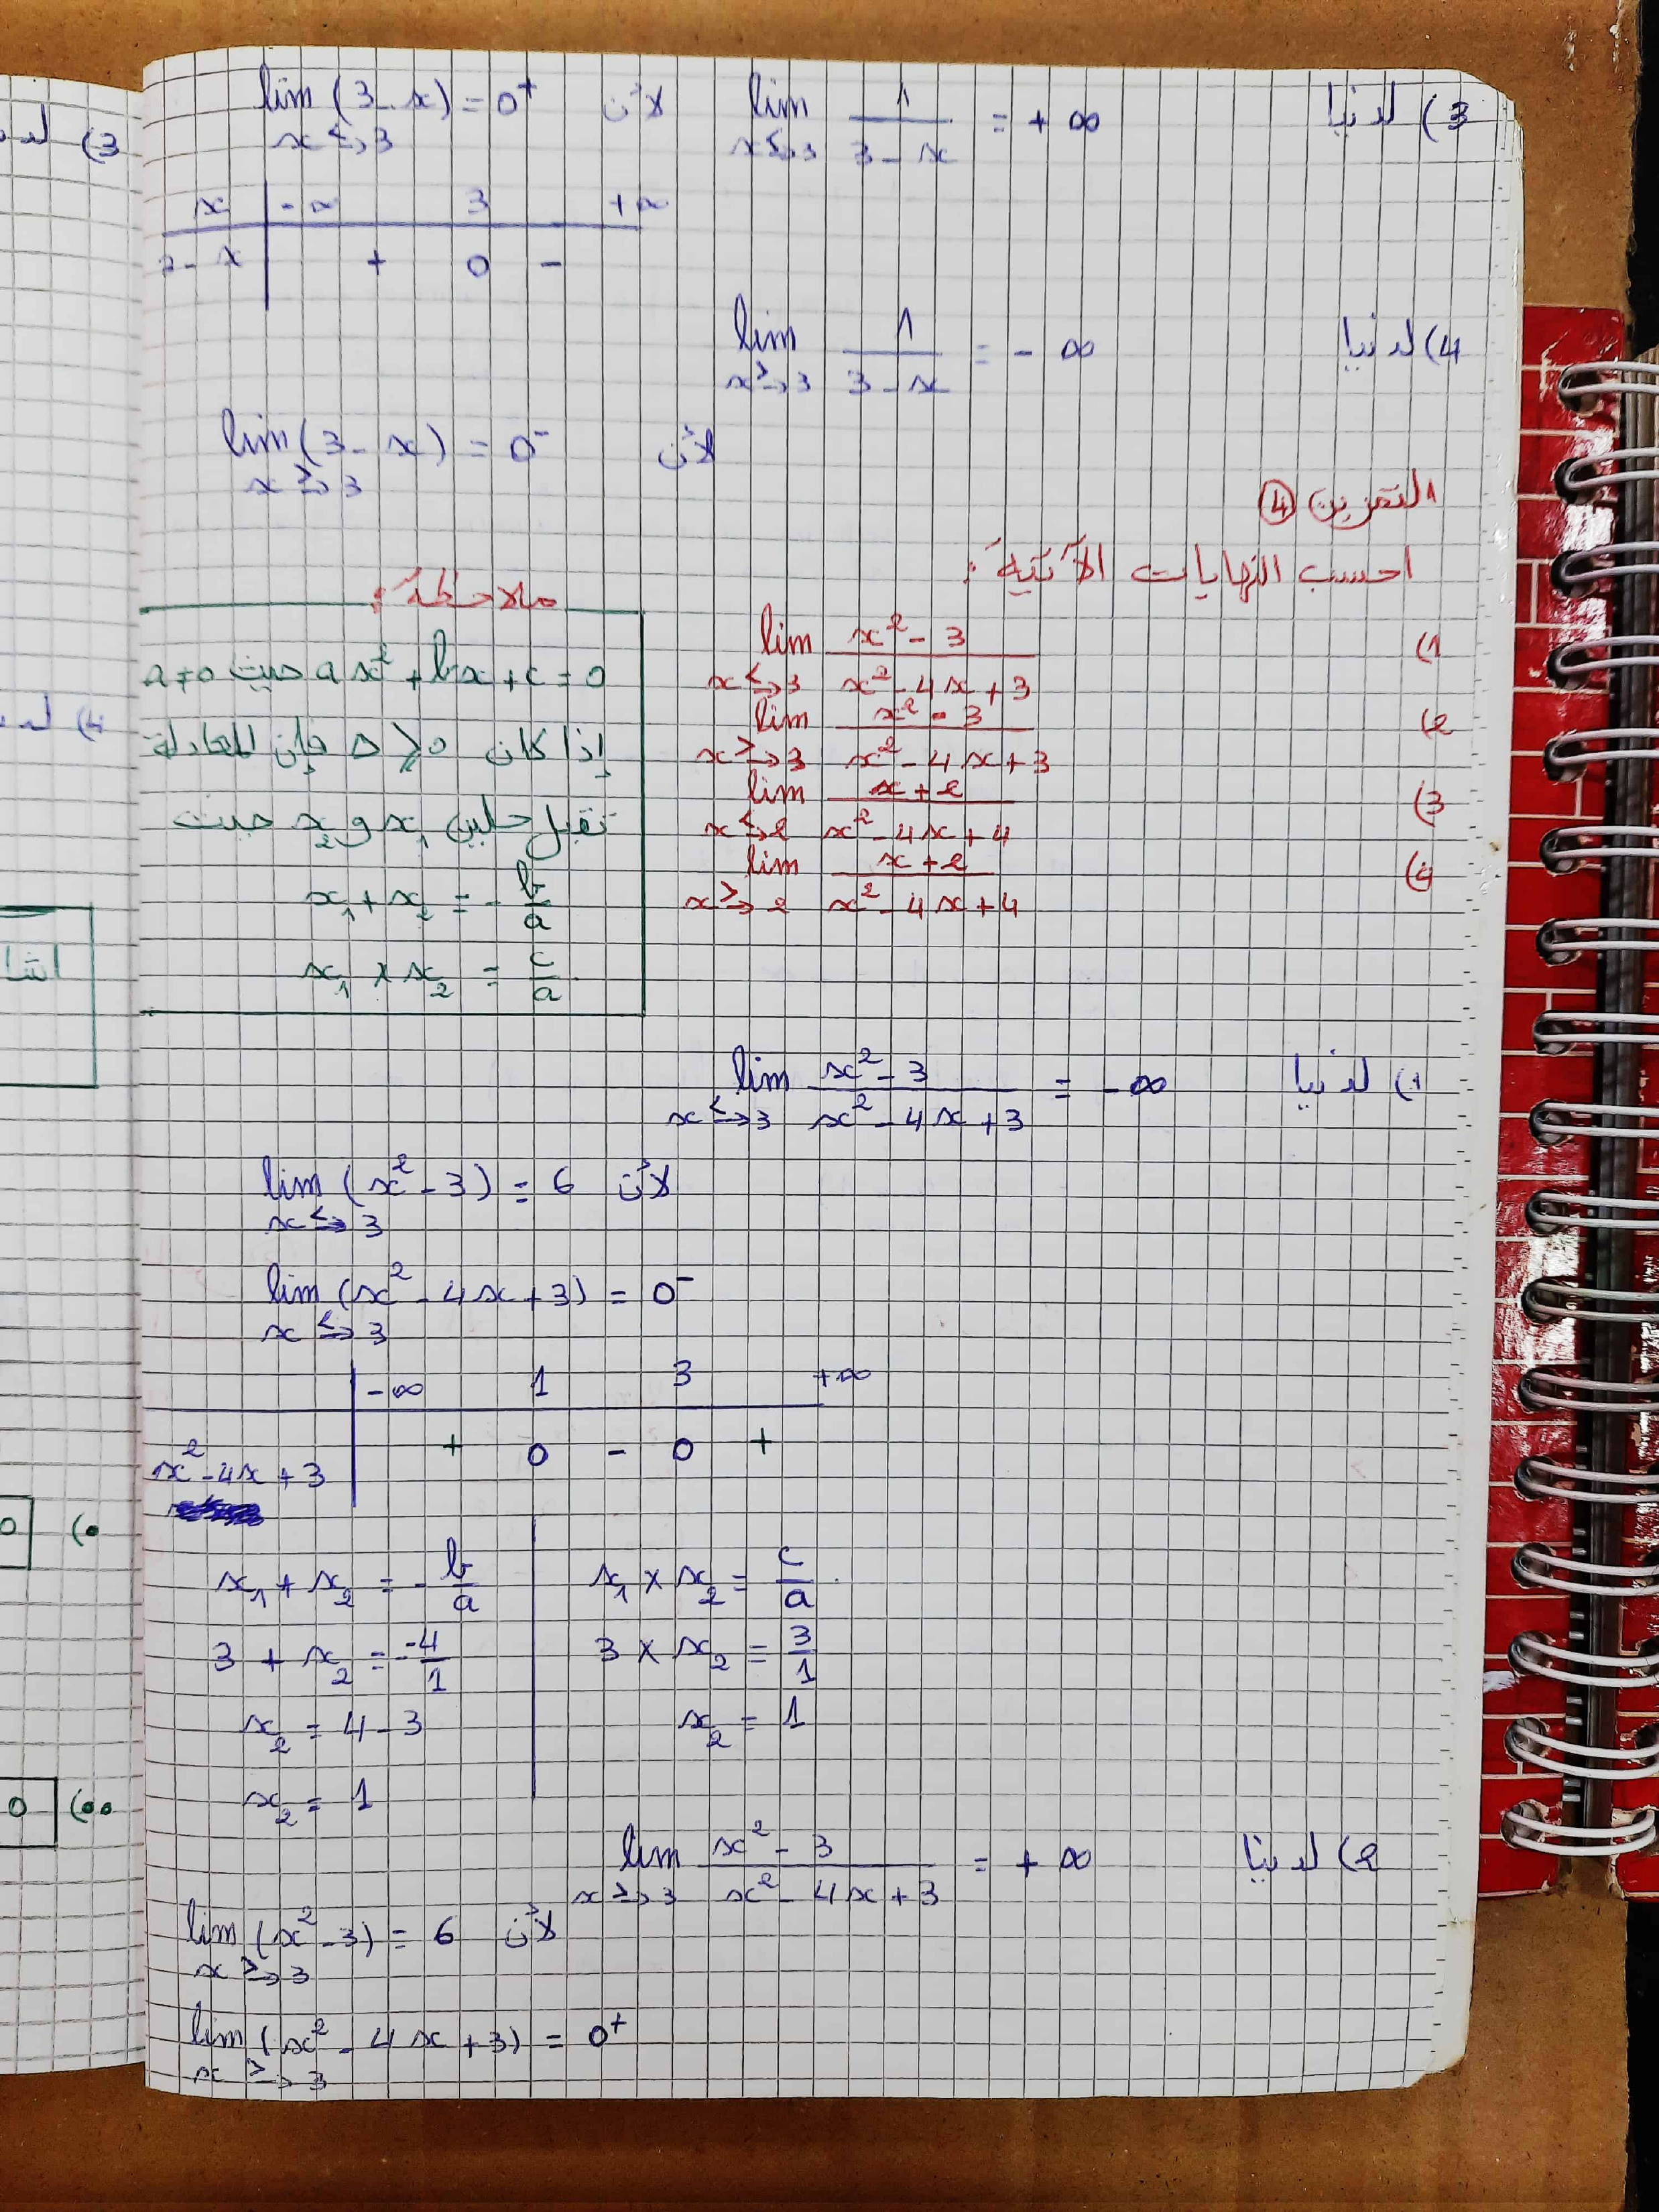 3) لدينا lim x<→3 1/(3-x) = +∞ لأن lim x<→3 (3-x) = 0⁺
x | -∞ 3 +∞
3-x | + 0 -
4) لدينا lim x>→3 1/(3-x) = -∞
لأن lim x>→3 (3-x) = 0⁻
التمرين ④
احسب النهايات الآتية :
1) lim x<→3 (x²-3)/(x²-4x+3)
2) lim x>→3 (x²-3)/(x²-4x+3)
3) lim x<→2 (x+2)/(x²-4x+4)
4) lim x>→2 (x+2)/(x²-4x+4)
ملاحظة :
ax²+bx+c=0 حيث a≠0
إذا كان Δ⩾0 فإن المعادلة
تقبل حلين x₁ و x₂ حيث
x₁+x₂ = -b/a
x₁×x₂ = c/a
1) لدينا lim x<→3 (x²-3)/(x²-4x+3) = -∞
لأن lim x<→3 (x²-3) = 6
lim x<→3 (x²-4x+3) = 0⁻
| -∞ 1 3 +∞
x²-4x+3 | + 0 - 0 +
x₁+x₂ = -b/a | x₁×x₂ = c/a
3+x₂ = - -4/1 | 3×x₂ = 3/1
x₂ = 4-3 | x₂ = 1
x₂ = 1
2) لدينا lim x>→3 (x²-3)/(x²-4x+3) = +∞
لأن lim x>→3 (x²-3) = 6
lim x>→3 (x²-4x+3) = 0⁺